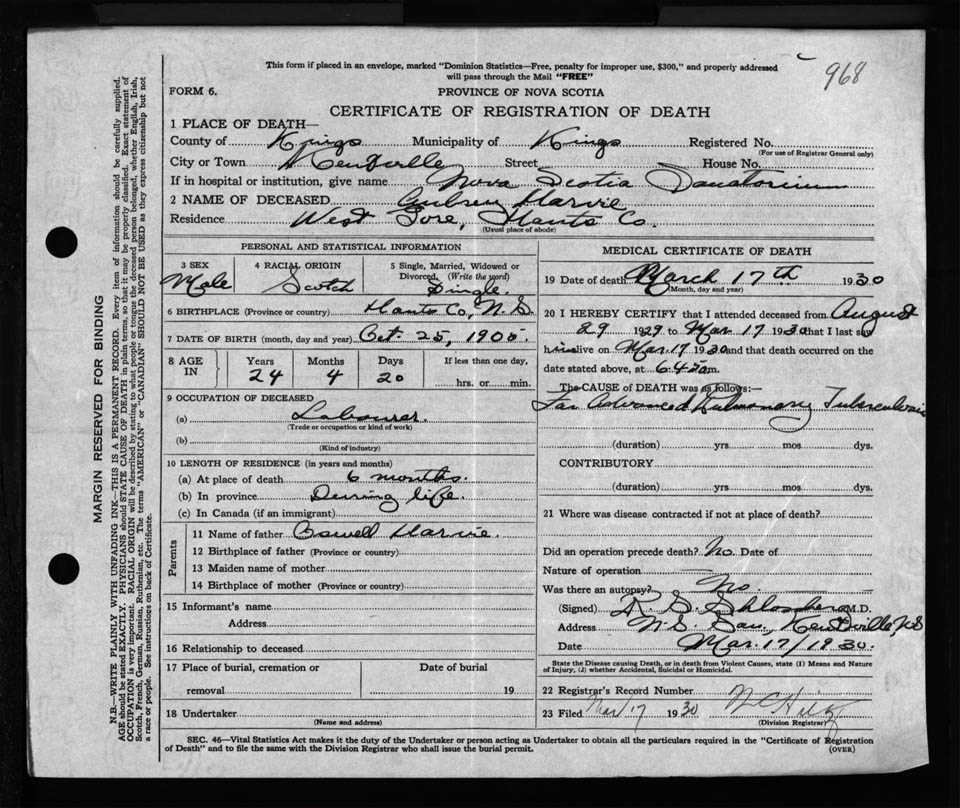 This form if placed in an envelope, marked "Dominion Statistics—Free, penalty for improper use, $300," and properly addressed
will pass through the Mail "FREE"
968
FORM 6.
PROVINCE OF NOVA SCOTIA
CERTIFICATE OF REGISTRATION OF DEATH
1 PLACE OF DEATH—
County of Kings Municipality of Kings Registered No.
(For use of Registrar General only)
City or Town Kentville Street House No.
If in hospital or institution, give name Nova Scotia Sanatorium
2 NAME OF DECEASED Aubrey Harvie
Residence West Gore, Hants Co.
(Usual place of abode)
PERSONAL AND STATISTICAL INFORMATION
3 SEX
Male
4 RACIAL ORIGIN
Scotch
5 Single, Married, Widowed or
Divorced. (Write the word)
Single.
6 BIRTHPLACE (Province or country) Hants Co, N.S.
7 DATE OF BIRTH (month, day and year) Oct. 25, 1905.
8 AGE
IN
Years
24
Months
4
Days
20
If less than one day,
hrs. or min.
9 OCCUPATION OF DECEASED
(a) Labourer.
(Trade or occupation or kind of work)
(b)
(Kind of industry)
10 LENGTH OF RESIDENCE (in years and months)
(a) At place of death 6 months.
(b) In province During life.
(c) In Canada (if an immigrant)
Parents
11 Name of father Oswell Harvie.
12 Birthplace of father (Province or country)
13 Maiden name of mother
14 Birthplace of mother (Province or country)
15 Informant's name
Address
16 Relationship to deceased
17 Place of burial, cremation or Date of burial
removal 19
18 Undertaker
(Name and address)
MEDICAL CERTIFICATE OF DEATH
19 Date of death March 17th 1930
(Month, day and year)
20 I HEREBY CERTIFY that I attended deceased from August
29 1929 to Mar 17 1930 that I last saw
him alive on Mar 17 1930 and that death occurred on the
date stated above, at 6.45 am.
The CAUSE OF DEATH was as follows:—
Far Advanced Pulmonary Tuberculosis
(duration) yrs mos dys.
CONTRIBUTORY
(duration) yrs. mos dys.
21 Where was disease contracted if not at place of death?
Did an operation precede death? No. Date of
Nature of operation
Was there an autopsy? No.
(Signed) M.D.
Address N.S. San, Kentville, N.S
Date Mar. 17/1930.
State the Disease causing Death, or in death from Violent Causes, state (1) Means and Nature
of Injury, (2) whether Accidental, Suicidal or Homicidal.
22 Registrar's Record Number
23 Filed Mar 17 1930
(Division Registrar)
SEC. 46—Vital Statistics Act makes it the duty of the Undertaker or person acting as Undertaker to obtain all the particulars required in the "Certificate of Registration
of Death" and to file the same with the Division Registrar who shall issue the burial permit.
(OVER)
MARGIN RESERVED FOR BINDING
N.B.—WRITE PLAINLY WITH UNFADING INK—THIS IS A PERMANENT RECORD. Every item of information should be carefully supplied.
AGE should be stated EXACTLY. PHYSICIANS should STATE CAUSE OF DEATH in plain terms, so that it may be properly classified. Exact statement of
OCCUPATION is very important. RACIAL ORIGIN will be described by stating to what people or tongue the deceased person belonged, whether English, Irish,
Scotch, French, German, Russian, Ruthenian, etc. The terms "AMERICAN" or "CANADIAN" SHOULD NOT BE USED as they express citizenship but not
a race or people. See instructions on back of Certificate.